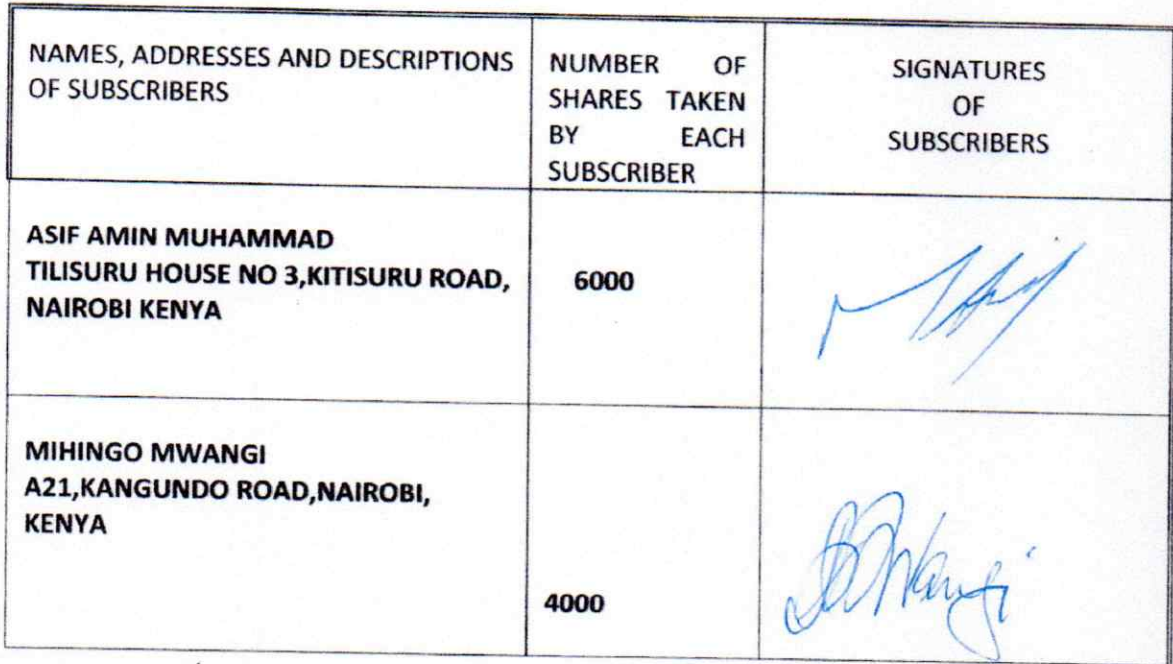 NAMES, ADDRESSES AND DESCRIPTIONS
OF SUBSCRIBERS
NUMBER OF
SHARES TAKEN
BY EACH
SUBSCRIBER
SIGNATURES
OF
SUBSCRIBERS
ASIF AMIN MUHAMMAD
TILISURU HOUSE NO 3,KITISURU ROAD,
NAIROBI KENYA
6000
MIHINGO MWANGI
A21,KANGUNDO ROAD,NAIROBI,
KENYA
4000